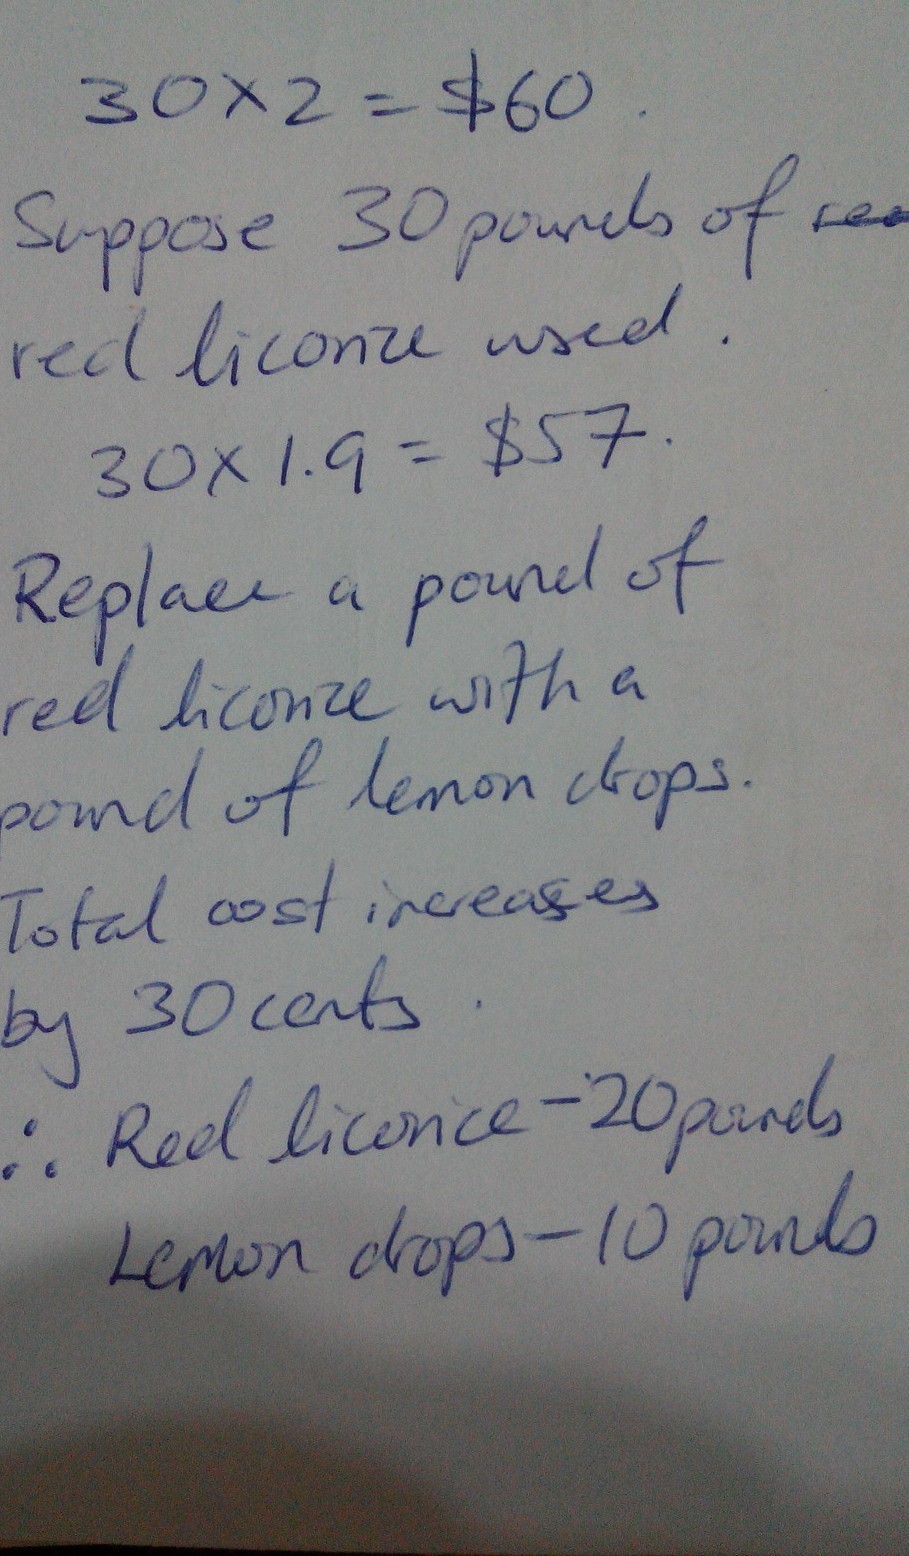 30×2 = $60.
Suppose 30 pounds of
red licorice used.
30×1.9 = $57.
Replace a pound of
red licorice with a
pound of lemon drops.
Total cost increases
by 30 cents.
∴ Red licorice - 20 pounds
Lemon drops - 10 pounds